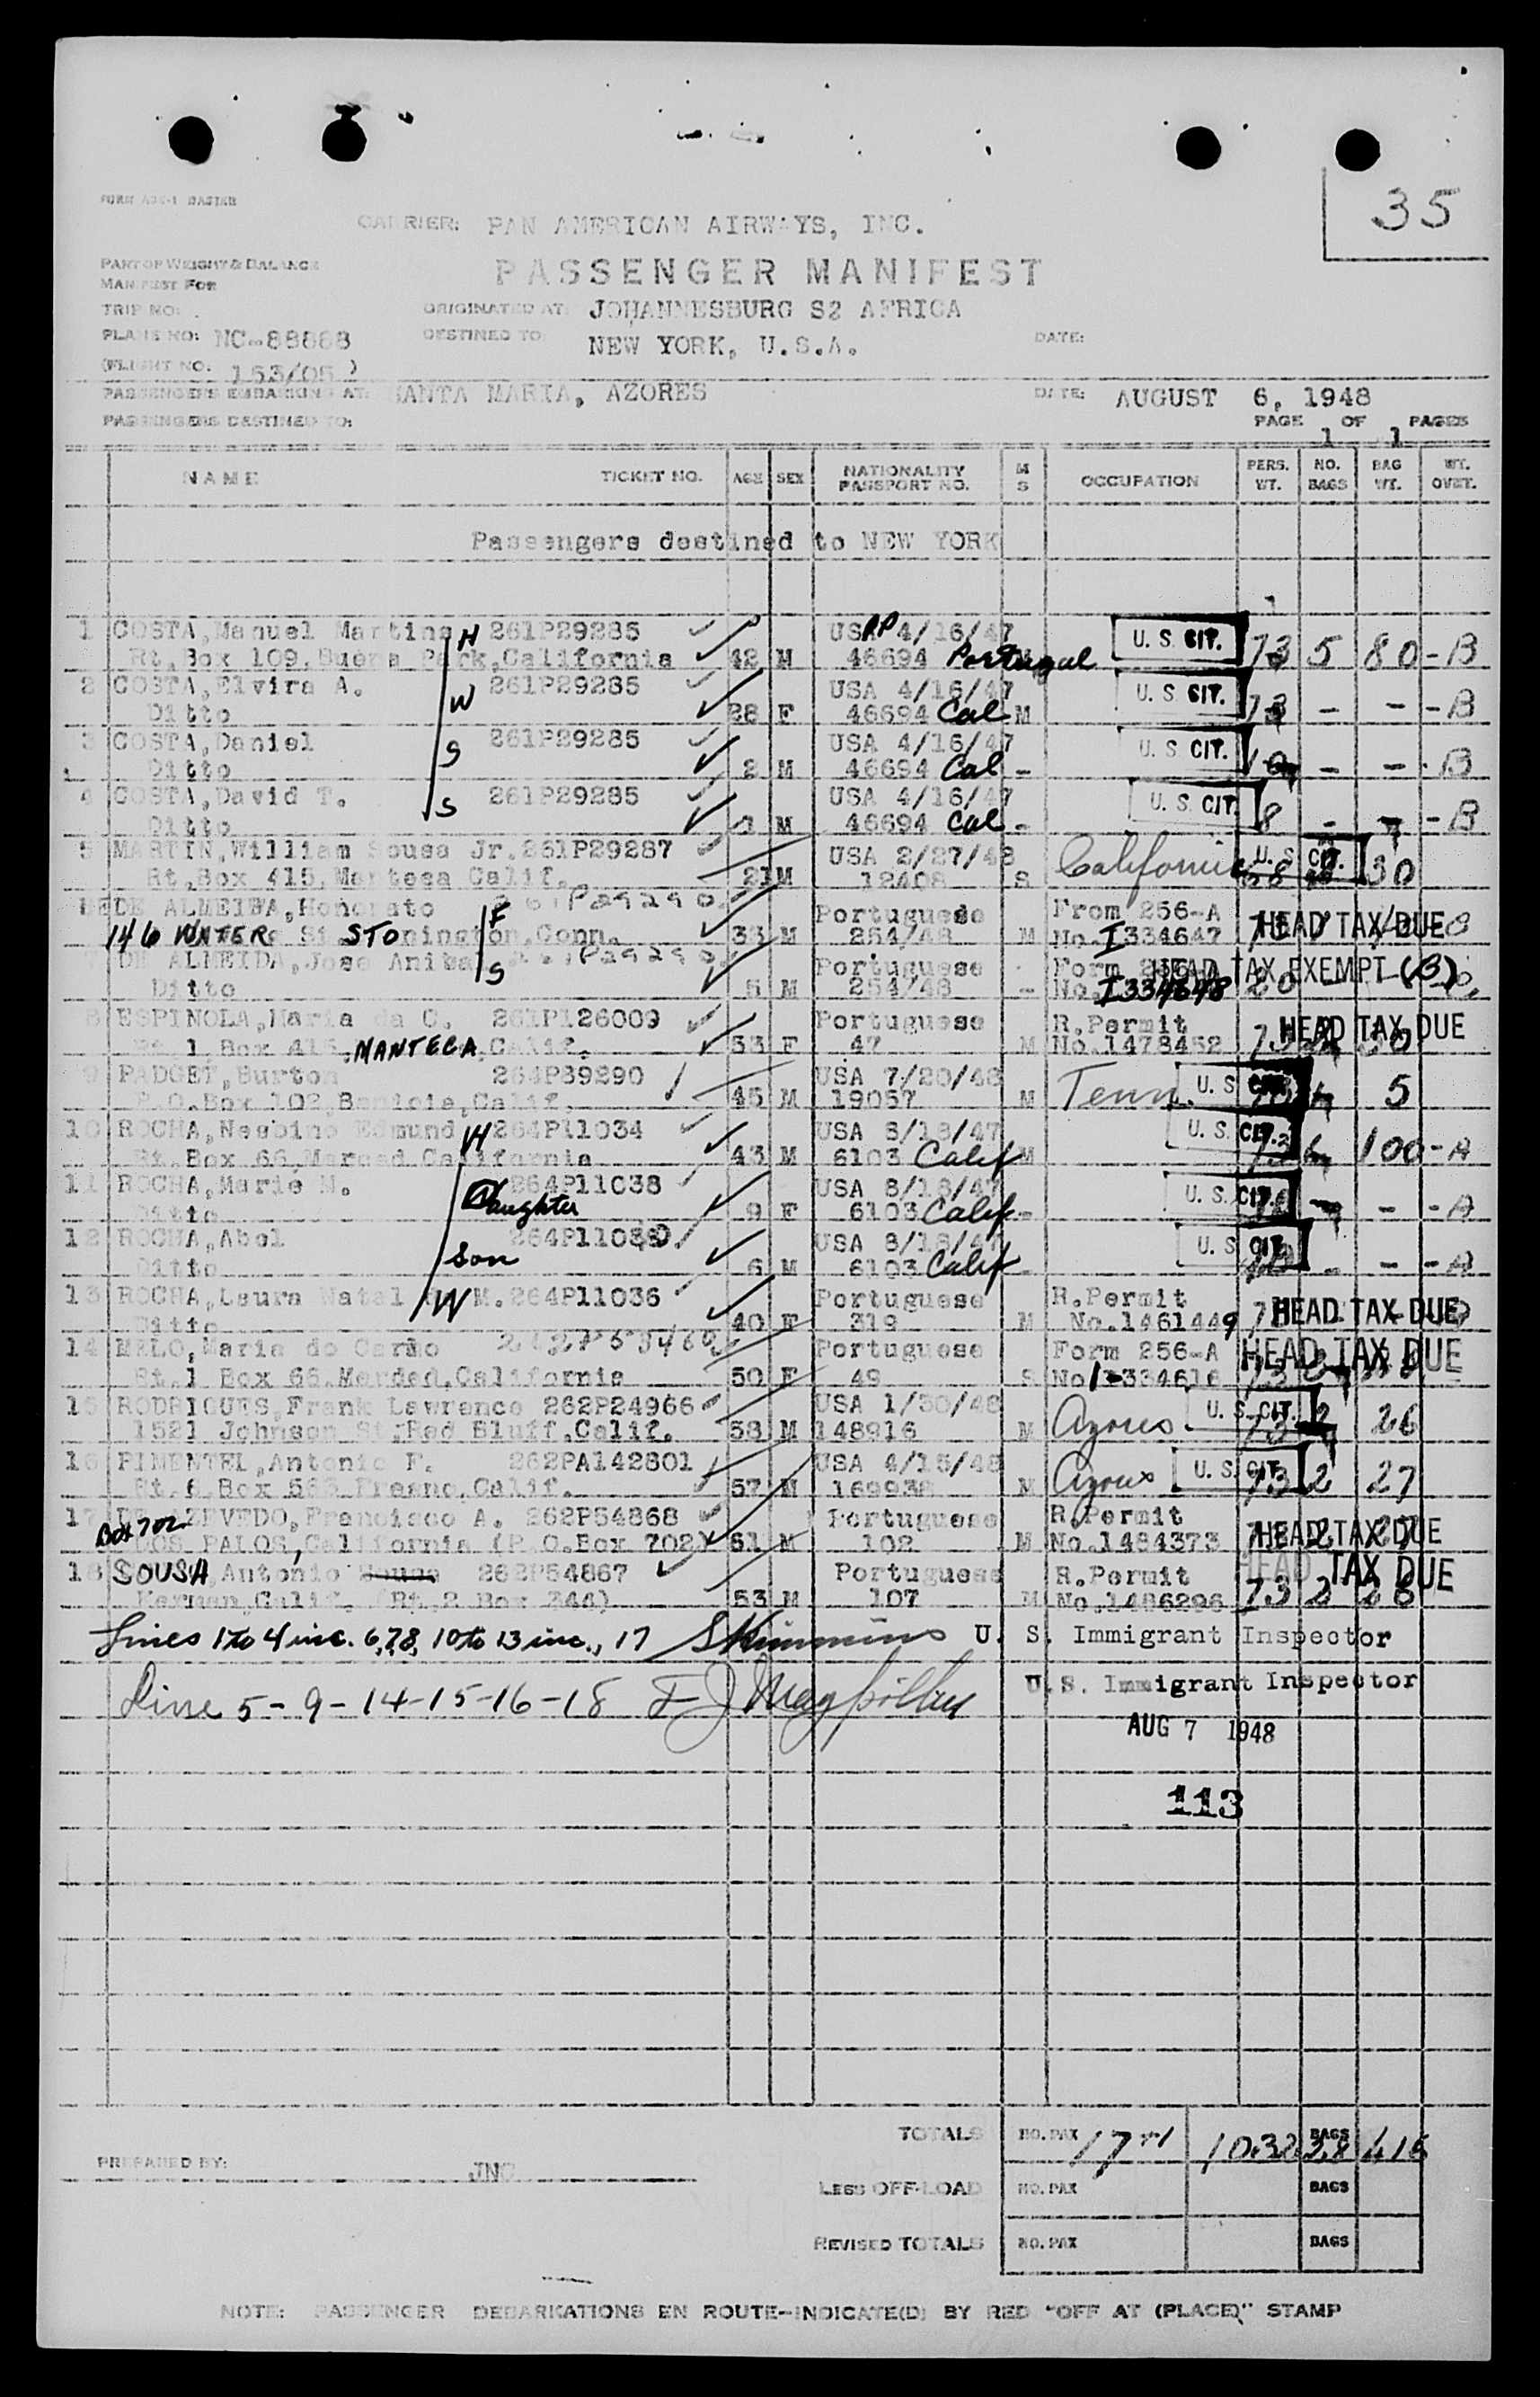 35
CARRIER: PAN AMERICAN AIRWAYS, INC.
PART OF WEIGHT & BALANCE
MANIFEST FOR
PASSENGER MANIFEST
TRIP NO:
ORIGINATED AT: JOHANNESBURG S2 AFRICA
PLANE NO: NC-88868
DESTINED TO: NEW YORK, U.S.A.
DATE:
(FLIGHT NO. 153/05)
PASSENGERS EMBARKING AT: SANTA MARIA, AZORES DATE: AUGUST 6, 1948
PASSENGERS DESTINED TO: PAGE 1 OF 1 PAGES
NAME TICKET NO. AGE SEX NATIONALITY PASSPORT NO. M S OCCUPATION PERS. WT. NO. BAGS BAG WT. WT. OVET.
Passengers destined to NEW YORK
1 COSTA, Manuel Martins H 261P29285 USA PP 4/16/47 U. S. CIT.
Rt. Box 109, Buena Park, California 42 M 46694 Portugal 73 5 80 - B
2 COSTA, Elvira A. W 261P29285 USA 4/16/47 U. S. CIT.
Ditto 28 F 46694 Cal M 73 - - - B
3 COSTA, Daniel S 261P29285 USA 4/16/47 U. S. CIT.
Ditto 2 M 46694 Cal - 10 - - - B
4 COSTA, David T. S 261P29285 USA 4/16/47 U. S. CIT.
Ditto 1 M 46694 Cal - 8 - - - B
5 MARTIN, William Sousa Jr. 261P29287 USA 2/27/48 California U. S. CIT.
Rt. Box 415, Manteca Calif. 21 M 12408 S 30
6 DE ALMEIDA, Honorato F 261P29290 Portuguese From 256-A
146 WATER St. STOnington, Conn. 33 M 254/48 M No. I334647 HEAD TAX DUE
7 DE ALMEIDA, Jose Anibal S 261P29290 Portuguese Form 256-A HEAD TAX EXEMPT (B)
Ditto 5 M 254/48 - No. I334648 20
8 ESPINOLA, Maria da C. 261P126009 Portuguese R.Permit HEAD TAX DUE
Rt. 1, Box 415, MANTECA, Calif. 53 F 47 M No. 1478452
9 PADGET, Burton 264P89290 USA 7/20/48 Tenn. U. S. CIT.
P.O. Box 102, Benicia, Calif. 45 M 19057 M 5
10 ROCHA, Nesbino Edmund H 264P11034 USA 8/18/47 U. S. CIT.
Rt. Box 66, Merced California 43 M 6103 Calif M 100 - A
11 ROCHA, Marie M. Daughter 264P11038 USA 8/18/47 U. S. CIT.
Ditto 9 F 6103 Calif - - - - A
12 ROCHA, Abel son USA 8/18/47 U. S. CIT.
Ditto 6 M 6103 Calif - - - - A
13 ROCHA, Laura Natal W M. 264P11036 Portuguese R.Permit HEAD TAX DUE
Ditto 40 F 319 M No. 1461449
14 MELO, Maria do Carmo Portuguese Form 256-A HEAD TAX DUE
Rt. 1 Box 66, Merded, California 50 F 49 S No I-334616
15 RODRIGUES, Frank Lawrence 262P24966 USA 1/30/48 Azores U. S. CIT.
1521 Johnson St. Red Bluff, Calif. 58 M 148916 M 73 2 26
16 PIMENTEL, Antonio F. 262PA142801 USA 4/15/48 Azores U. S. CIT.
Rt. 6, Box 563 Fresno, Calif. 57 M 169938 M 73 2 27
17 DE AZEVEDO, Francisco A. 262P54868 Portuguese R.Permit
Box 702 DOS PALOS, California (P.O.Box 702) 61 M 102 M No. 1484373 HEAD TAX DUE
18 SOUSA, Antonio Sousa 262P54867 Portuguese R.Permit HEAD TAX DUE
Kerman, Calif. (Rt. 2 Box 344) 53 M 107 M No. 1486296 73 2 28
Lines 1 to 4 inc. 6, 7, 8, 10 to 13 inc., 17 S Kimmins U. S. Immigrant Inspector
Line 5-9-14-15-16-18 U.S. Immigrant Inspector
AUG 7 1948
113
TOTALS NO. PAX 17 + 1 1032 BAGS 38 415
PREPARED BY: JNC
LESS OFF-LOAD NO. PAX BAGS
REVISED TOTALS NO. PAX BAGS
NOTE: PASSENGER DEBARKATIONS EN ROUTE-INDICATE(D) BY RED "OFF AT (PLACE)" STAMP